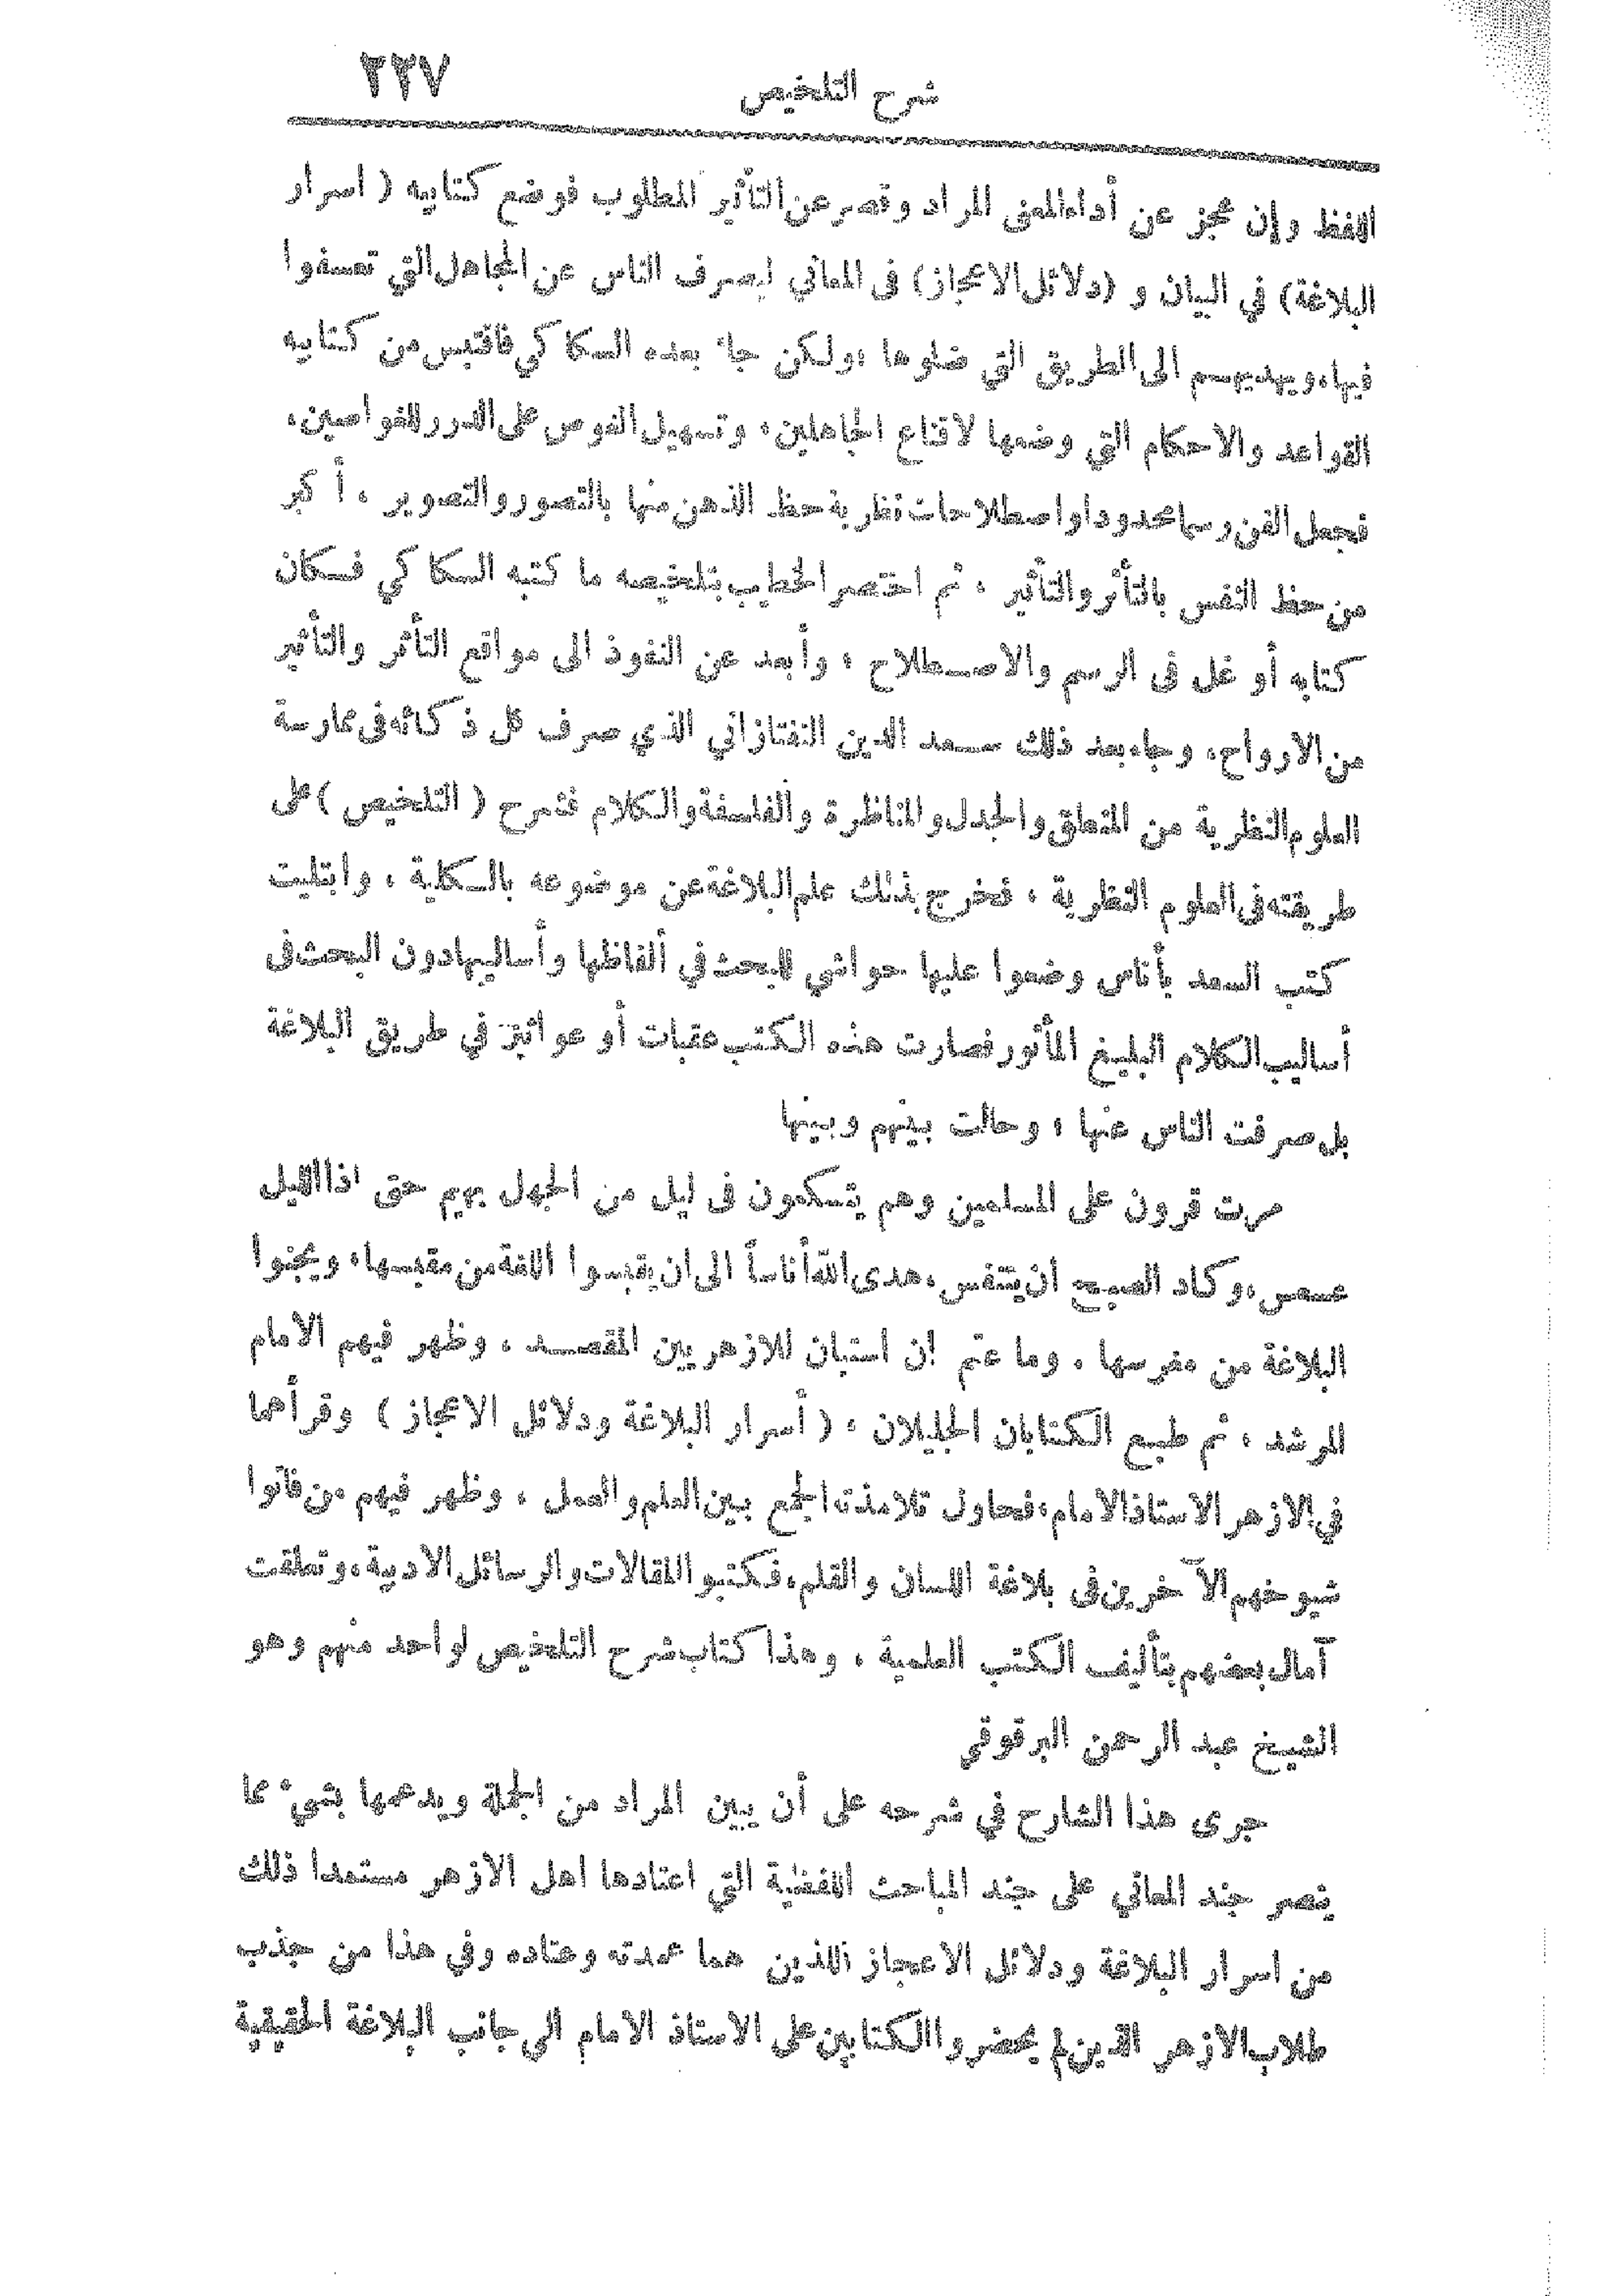 شرح التلخيص ٢٢٧
اللفظ وإن عجز عن أداء المعنى المراد وقصر عن التأثير المطلوب فوضع كتابيه ( اسرار
البلاغة) في البيان و (دلائل الاعجاز) فى المعاني ليصرف الناس عن المجاهل التي تعسفوا
فيها، ويهديهم الى الطريق التي ضلوها ، ولكن جاء بعده السكاكي فاقتبس من كتابيه
القواعد والاحكام التي وضعها لاقناع الجاهلين، وتسهيل الغوص على الدرر للغواصين،
فجعل الفن رسما محدودا واصطلاحات نظرية حظ الذهن منها بالتصور والتصوير ، أكبر
من حظ النفس بالتأثر والتأثير ، ثم اختصر الخطيب بتلخيصه ما كتبه السكاكي فكان
كتابه أوغل فى الرسم والاصطلاح ، وأبعد عن النفوذ الى مواقع التأثر والتأثير
من الارواح، وجاء بعد ذلك سعد الدين التفتازاني الذي صرف كل ذكائه فى ممارسة
العلوم النظرية من المنطق والجدل والمناظرة والفلسفة والكلام فشرح ( التلخيص ) على
طريقته فى العلوم النظرية ، فخرج بذلك علم البلاغة عن موضوعه بالكلية ، وابتليت
كتب السعد بأناس وضعوا عليها حواشي للبحث في ألفاظها وأساليبها دون البحث فى
أساليب الكلام البليغ المأثور فصارت هذه الكتب عقبات أو عواثير في طريق البلاغة
بل صرفت الناس عنها ، وحالت بينهم وبينها
مرت قرون على المسلمين وهم يتسكعون فى ليل من الجهل بهيم حتى اذا الليل
عسعس، وكاد الصبح ان يتنفس، هدى الله أناساً الى ان يقبسوا اللغة من مقبسها، ويجنوا
البلاغة من مغرسها . وما عتم ان استبان للازهريين المقصد ، وظهر فيهم الامام
المرشد ، ثم طبع الكتابان الجليلان ، ( أسرار البلاغة ودلائل الاعجاز ) وقرأهما
في الازهر الاستاذ الامام، فحاول تلامذته الجمع بين العلم والعمل ، وظهر فيهم من فاقوا
شيوخهم الآخرين فى بلاغة اللسان والقلم، فكتبوا المقالات والرسائل الادبية، وتعلقت
آمال بعضهم بتأليف الكتب العلمية ، وهذا كتاب شرح التلخيص لواحد منهم وهو
الشيخ عبد الرحمن البرقوقي
جرى هذا الشارح في شرحه على أن يبين المراد من الجملة ويدعمها بشيء مما
ينصر جند المعاني على جند المباحث اللفظية التي اعتادها اهل الازهر مستمدا ذلك
من اسرار البلاغة ودلائل الاعجاز اللذين هما عمدته وعتاده وفي هذا من جذب
طلاب الازهر الذين لم يحضروا الكتابين على الاستاذ الامام الى جانب البلاغة الحقيقية